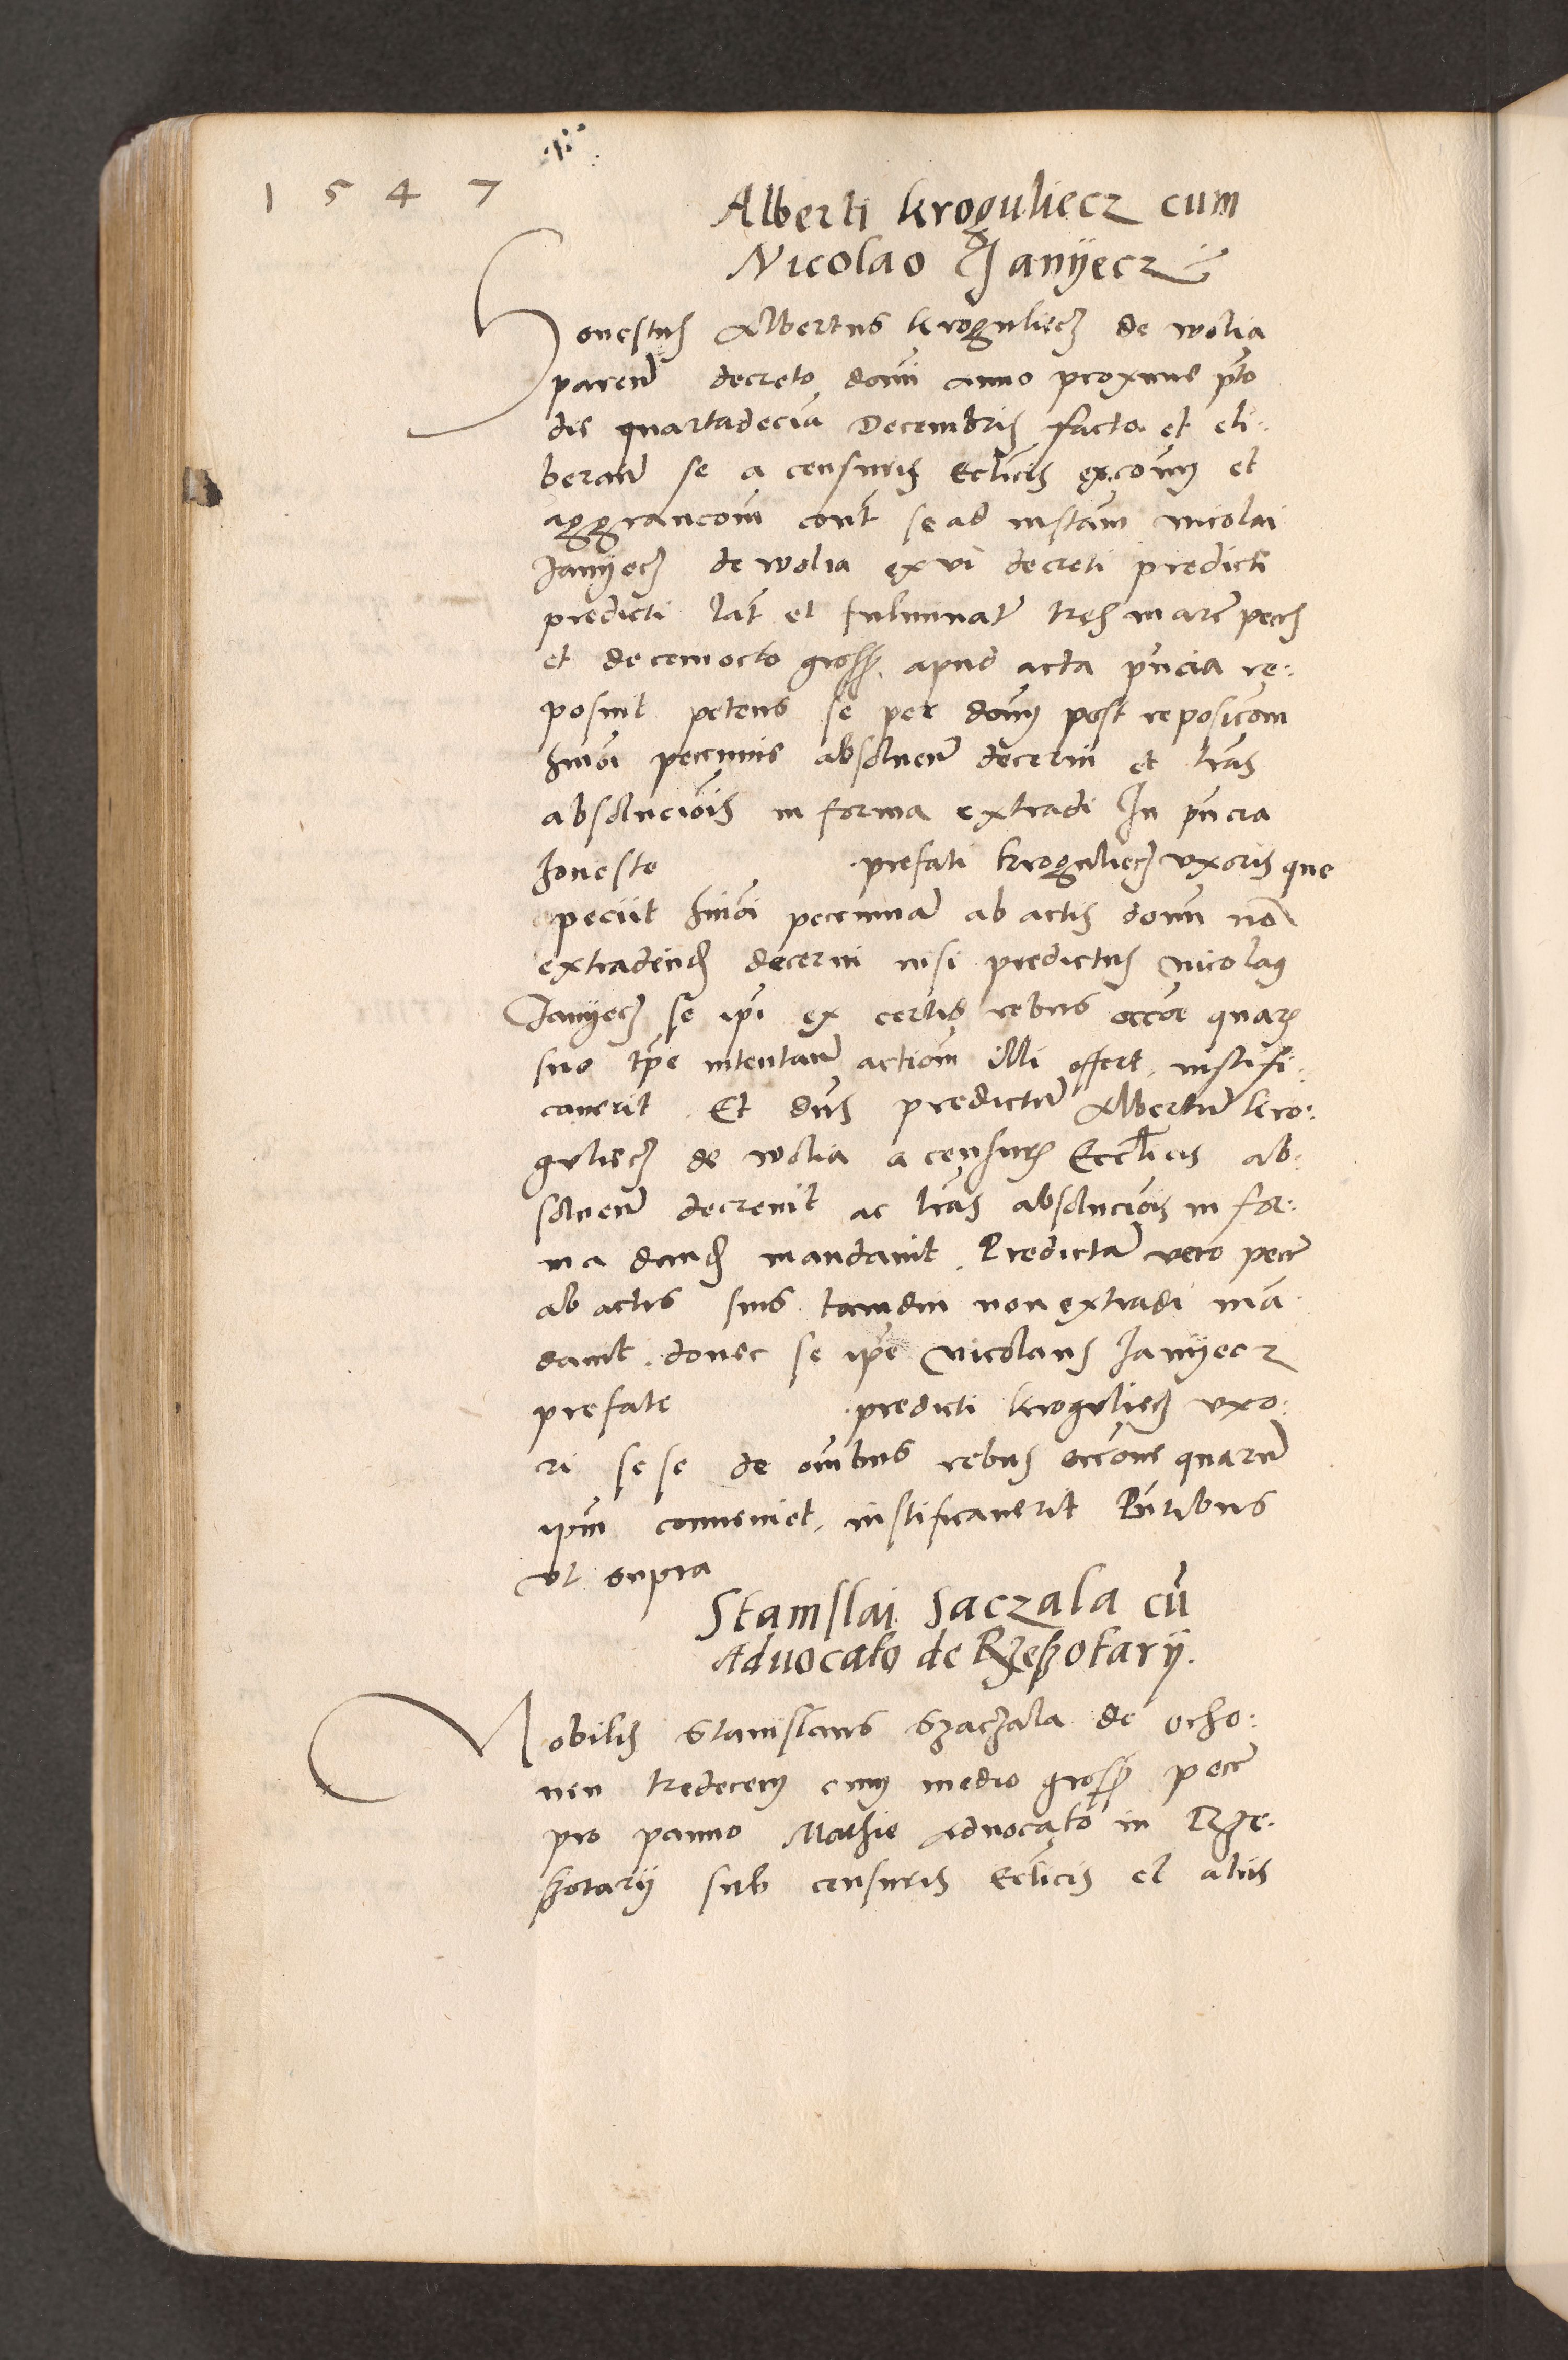 1 5 4 7
Alberti kroguliecz cum
Nicolao Janyecz
Honestus Albertus kroguliecz de wolia
parend decreto domi anno proxime pto
die quartadecia Decembris facto et eli:
berand se a censuris Ecclicis excoms et
aggravacom cont se ad instam nicolai
Janyecz de wolia ex vi decreti predicti
predicti lat et fulminat tres marc pecc
et decemocto gross apud acta pncia re:
posuit petens se per dom post reposicom
hmoi pecunie absoluend decerni et lras
absoluciois in forma extradi In pncia
honeste prefati kroguliecz uxoris que
peciit hmoi pecuniam ab actis domi non
extradend decerni nisi predictus nicolaus
Janyecz se ipi ex certis rebus occoe quar
suo tpe intentare actiom illi offert iustifi:
caverit. Et dns predictum Albertum kro:
guliecz de wolia a censuris Ecclicis ab:
soluend decrevit ac lras absoluciois in for:
ma dand mandavit. Predictam vero pecc
ab actis suis tamdiu non extradi man
davit. donec se ipe Nicolaus Janyecz
prefate predicti kroguliecz uxo:
ri sese de omibus rebus occone quarum
ipm conveniet, iustificaverit Pntibus
ut supra
Stanislai Saczala cu
Advocato de Rzeszotarÿ.
Nobilis Stanislaus Szaczala de ocho:
nen tredecem cum medio gross pecc
pro panno Mathie Advocato in Rze:
szotary sub censuris Ecclicis et aliis